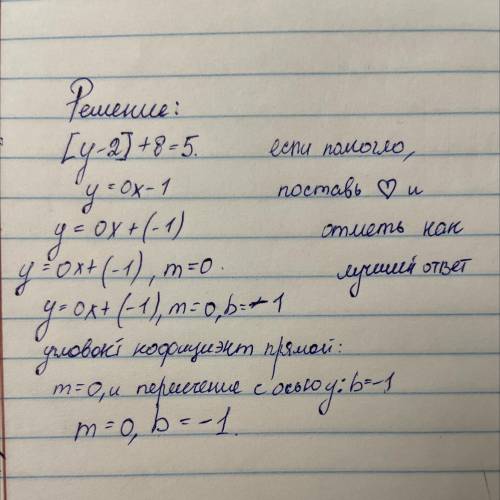 Решение:
[y-2]+8=5. если помогло,
y=0x-1 поставь ♡ и
y=0x+(-1) отметь как
y=0x+(-1), m=0. лучший ответ
y=0x+(-1), m=0, b=-1
угловой кофициэнт прямой:
m=0, и пересечение с осью y: b=-1
m=0, b=-1.